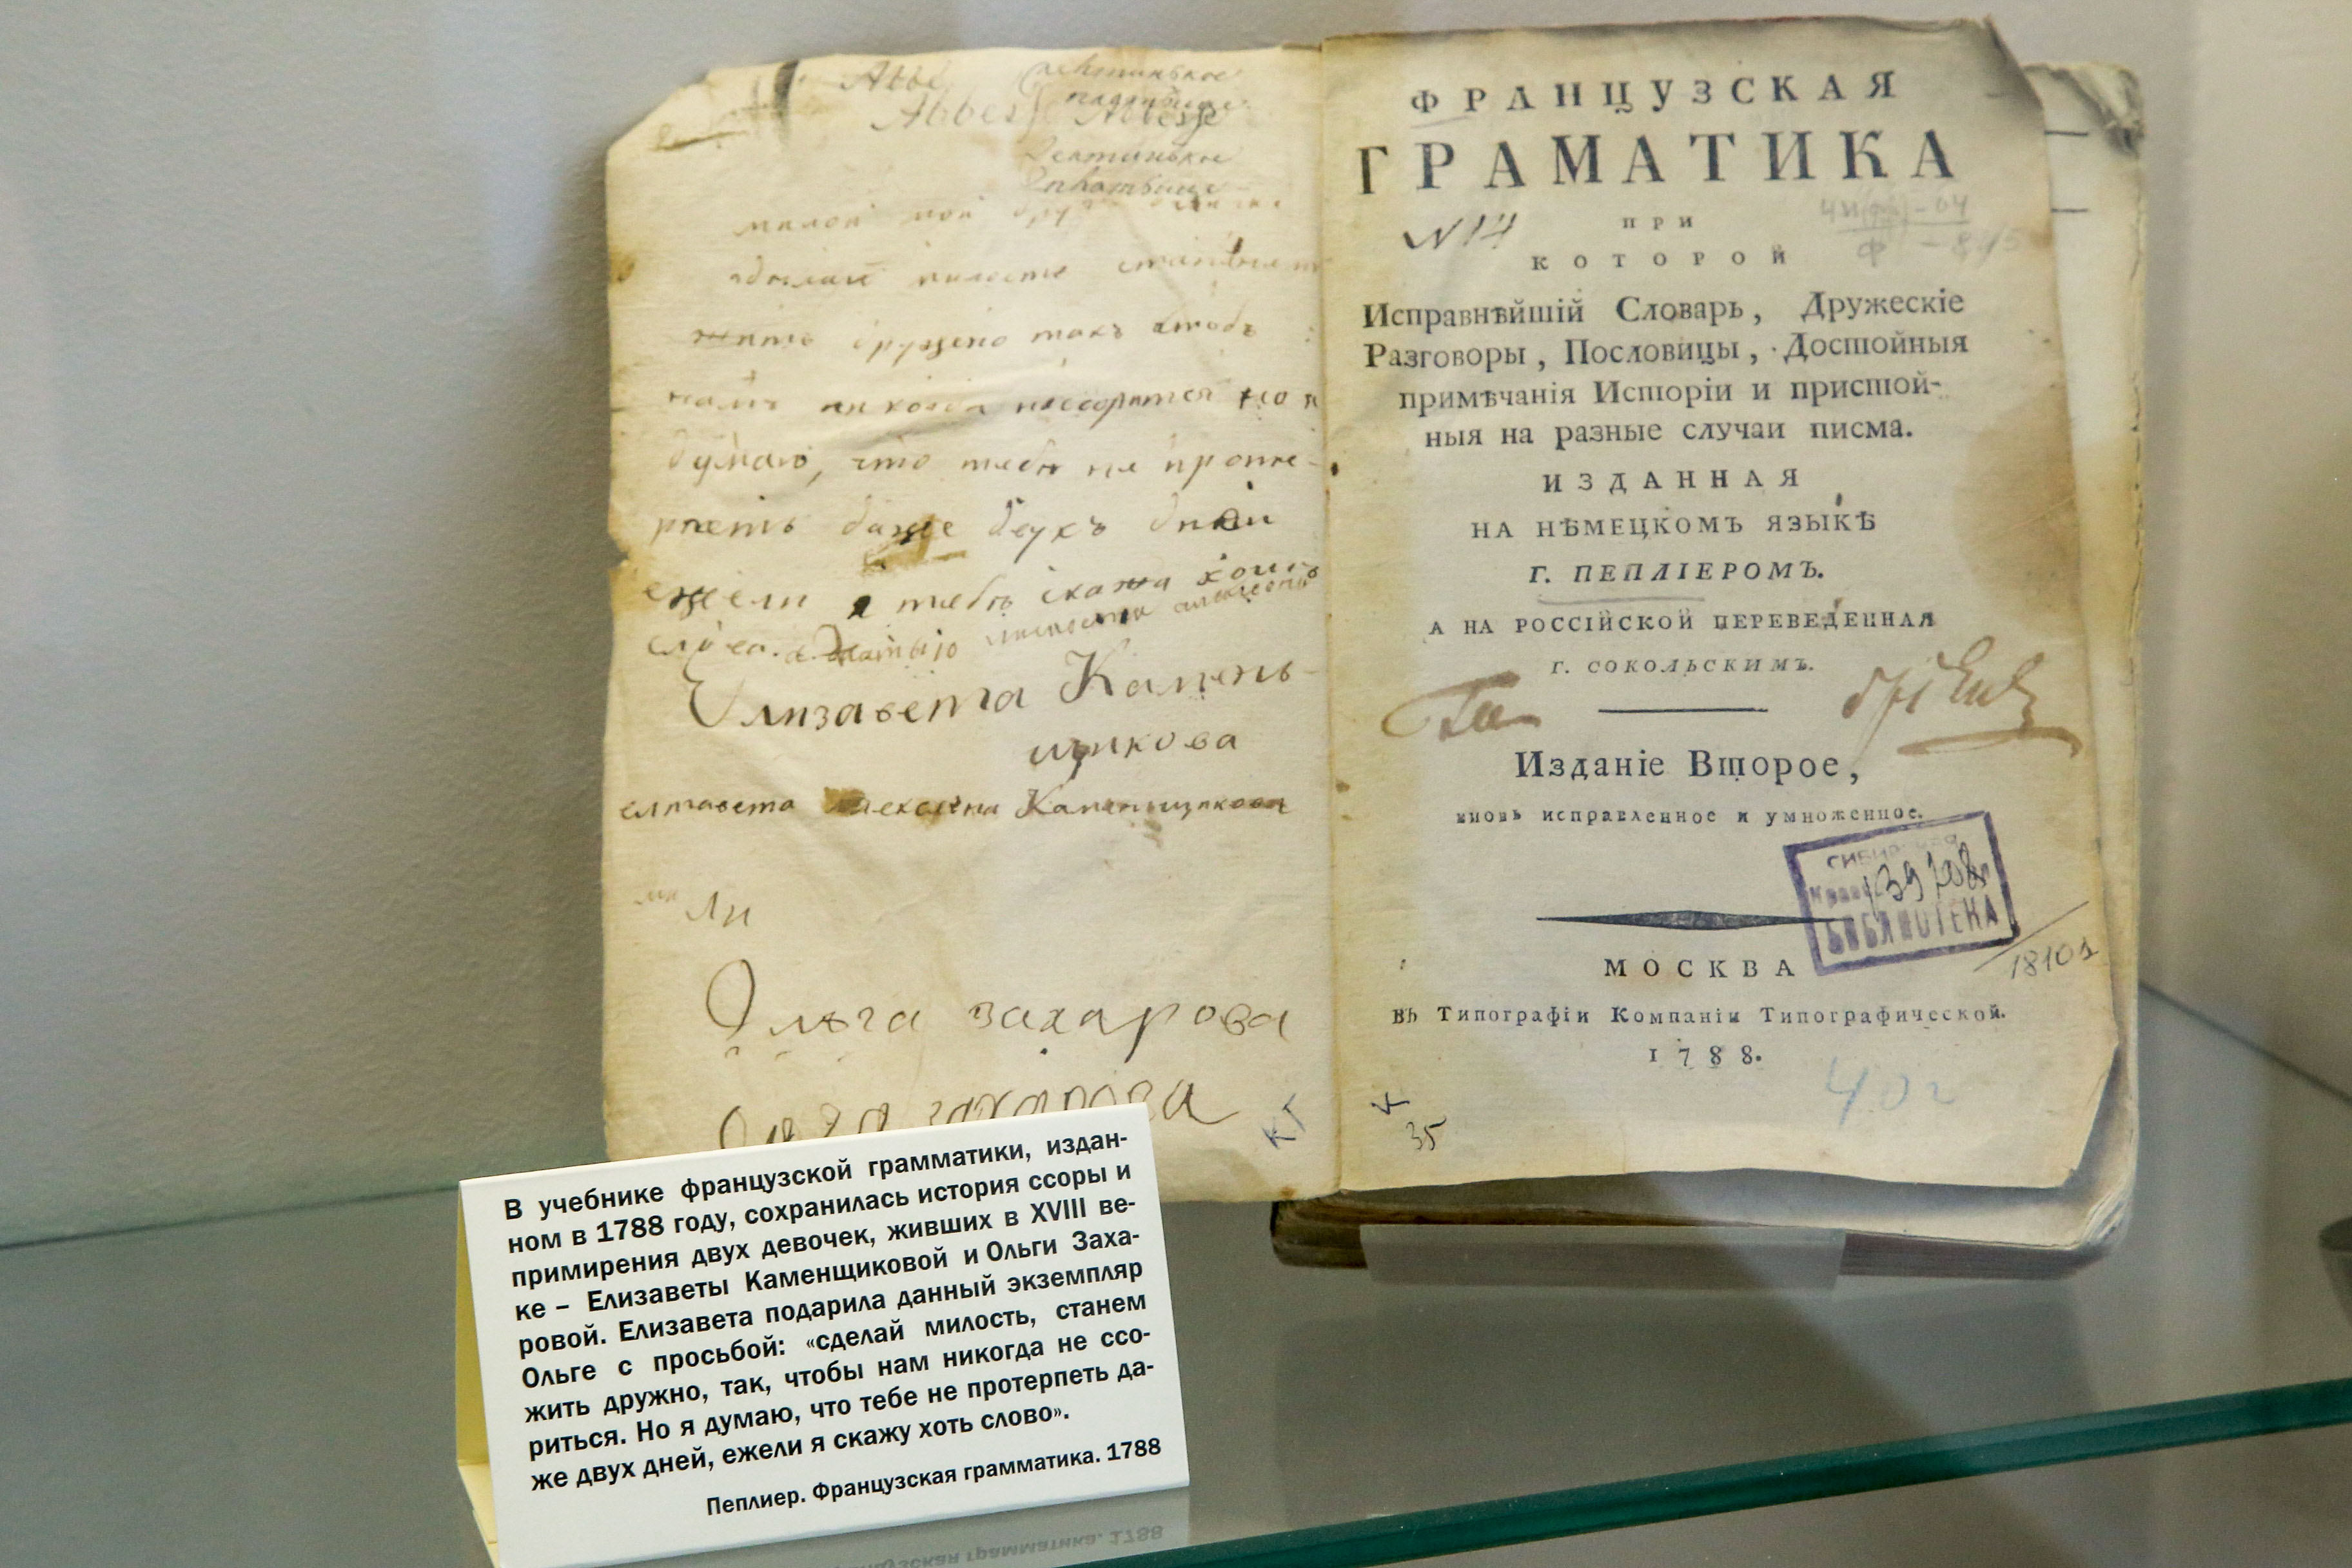 Abbé
Abbesse Abbesse
милой мой друг
зделай милость станем
жить дружно такъ чтобъ
намъ никогда нессорится но я
думаю, что тебѣ не протѣ-
рпеть даже двухъ дней
ежели я тебѣ скажу хоть
слова.
Елизавета Камень-
щикова
елизавета алексевна Каменщикова
Ли
Ольга захарова
Ольга захарова
КГ
ФРАНЦУЗСКАЯ
ГРАМАТИКА
N 14
ПРИ
КОТОРОЙ
Исправнѣйшій Словарь, Дружескіе
Разговоры, Пословицы, Достойныя
примѣчанія Исторіи и пристой-
ныя на разные случаи писма.
ИЗДАННАЯ
НА НѢМЕЦКОМЪ ЯЗЫКѢ
Г. ПЕПЛІЕРОМЪ.
А НА РОССІЙСКОЙ ПЕРЕВЕДЕННАЯ
Г. СОКОЛЬСКИМЪ.
Изданіе Второе,
вновь исправленное и умноженное.
СИБИРСКАЯ
139708
БИБЛИОТЕКА
18101
МОСКВА
въ Типографіи Компаніи Типографической.
1788.
35
В учебнике французской грамматики, издан-
ном в 1788 году, сохранилась история ссоры и
примирения двух девочек, живших в XVIII ве-
ке – Елизаветы Каменщиковой и Ольги Заха-
ровой. Елизавета подарила данный экземпляр
Ольге с просьбой: «сделай милость, станем
жить дружно, так, чтобы нам никогда не ссо-
риться. Но я думаю, что тебе не протерпеть да-
же двух дней, ежели я скажу хоть слово».
Пеплиер. Французская грамматика. 1788